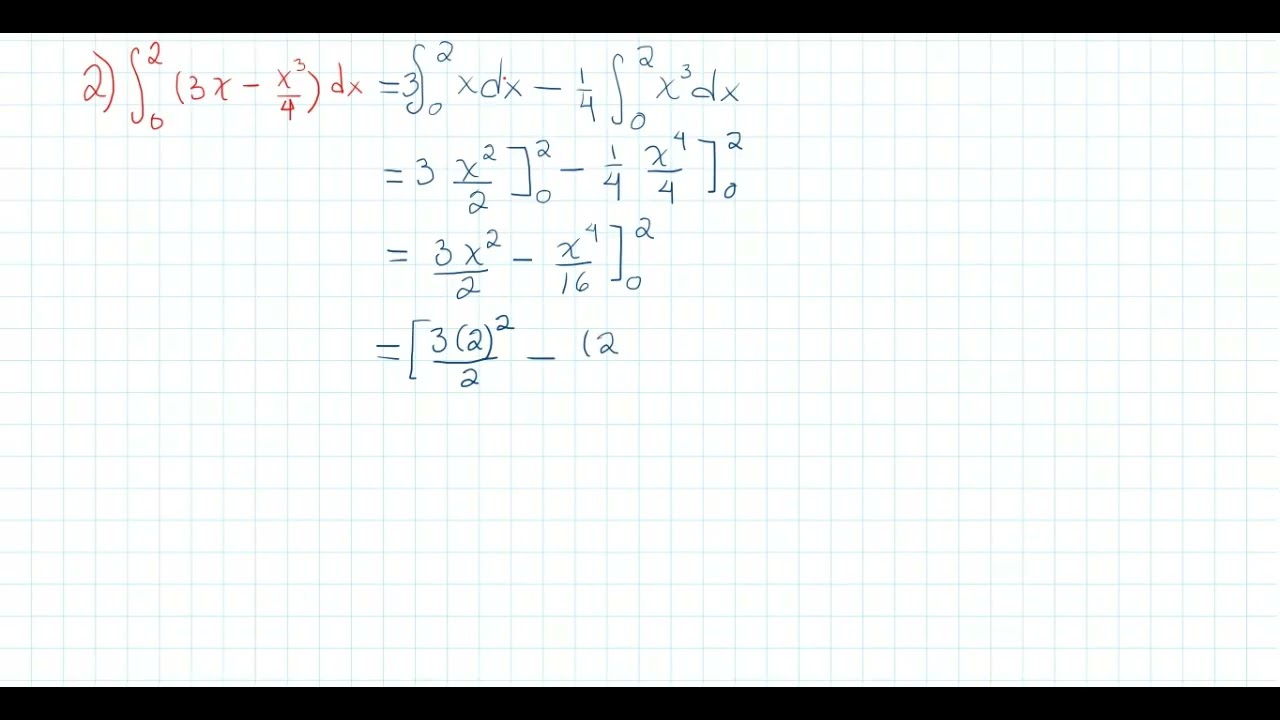 2) ∫₀² (3x − x³/4) dx = 3∫₀² x dx − 1/4 ∫₀² x³ dx
= 3 x²/2 ]₀² − 1/4 x⁴/4 ]₀²
= 3x²/2 − x⁴/16 ]₀²
= [ 3(2)²/2 − (2